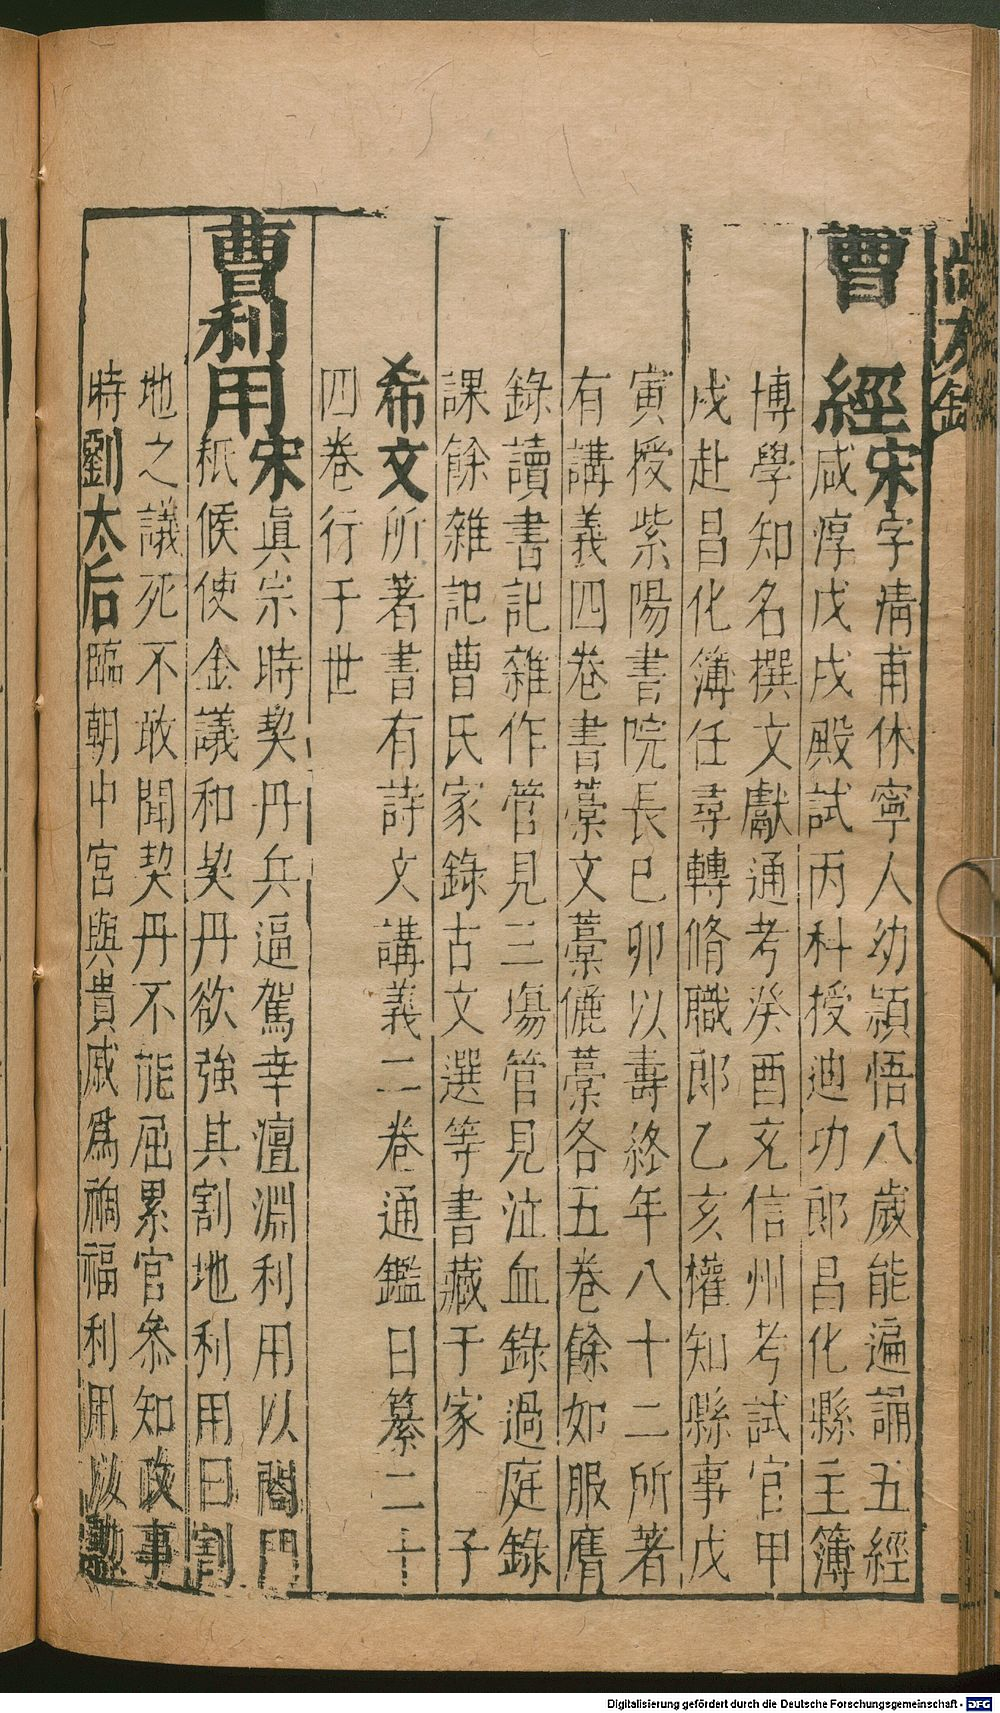 尚友錄
曹經宋字清甫休寧人幼穎悟八歲能遍誦五經
咸淳戊戌殿試丙科授迪功郎昌化縣主簿
博學知名撰文獻通考癸酉充信州考試官甲
戌赴昌化簿任尋轉脩職郎乙亥權知縣事戊
寅授紫陽書院長巳卯以壽終年八十二所著
有講義四卷書藁文藁儷藁各五卷餘如服膺
錄讀書記雜作管見三塲管見泣血錄過庭錄
課餘雜記曹氏家錄古文選等書藏于家 子
希文所著書有詩文講義二卷通鑑日纂二十
四卷行于世
曹利用宋眞宗時契丹兵逼駕幸澶淵利用以閤門
秖候使金議和契丹欲強其割地利用曰割
地之議死不敢聞契丹不能屈累官叅知政事
時劉太后臨朝中宮與貴戚爲禍福利用以勳
Digitalisierung gefördert durch die Deutsche Forschungsgemeinschaft - DFG